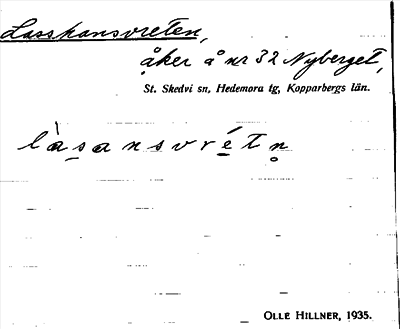 Lasskansvreten,
åker å nr 32 Nyberget,
St. Skedvi sn, Hedemora tg, Kopparbergs län.
làsansvrétn̥
OLLE HILLNER, 1935.